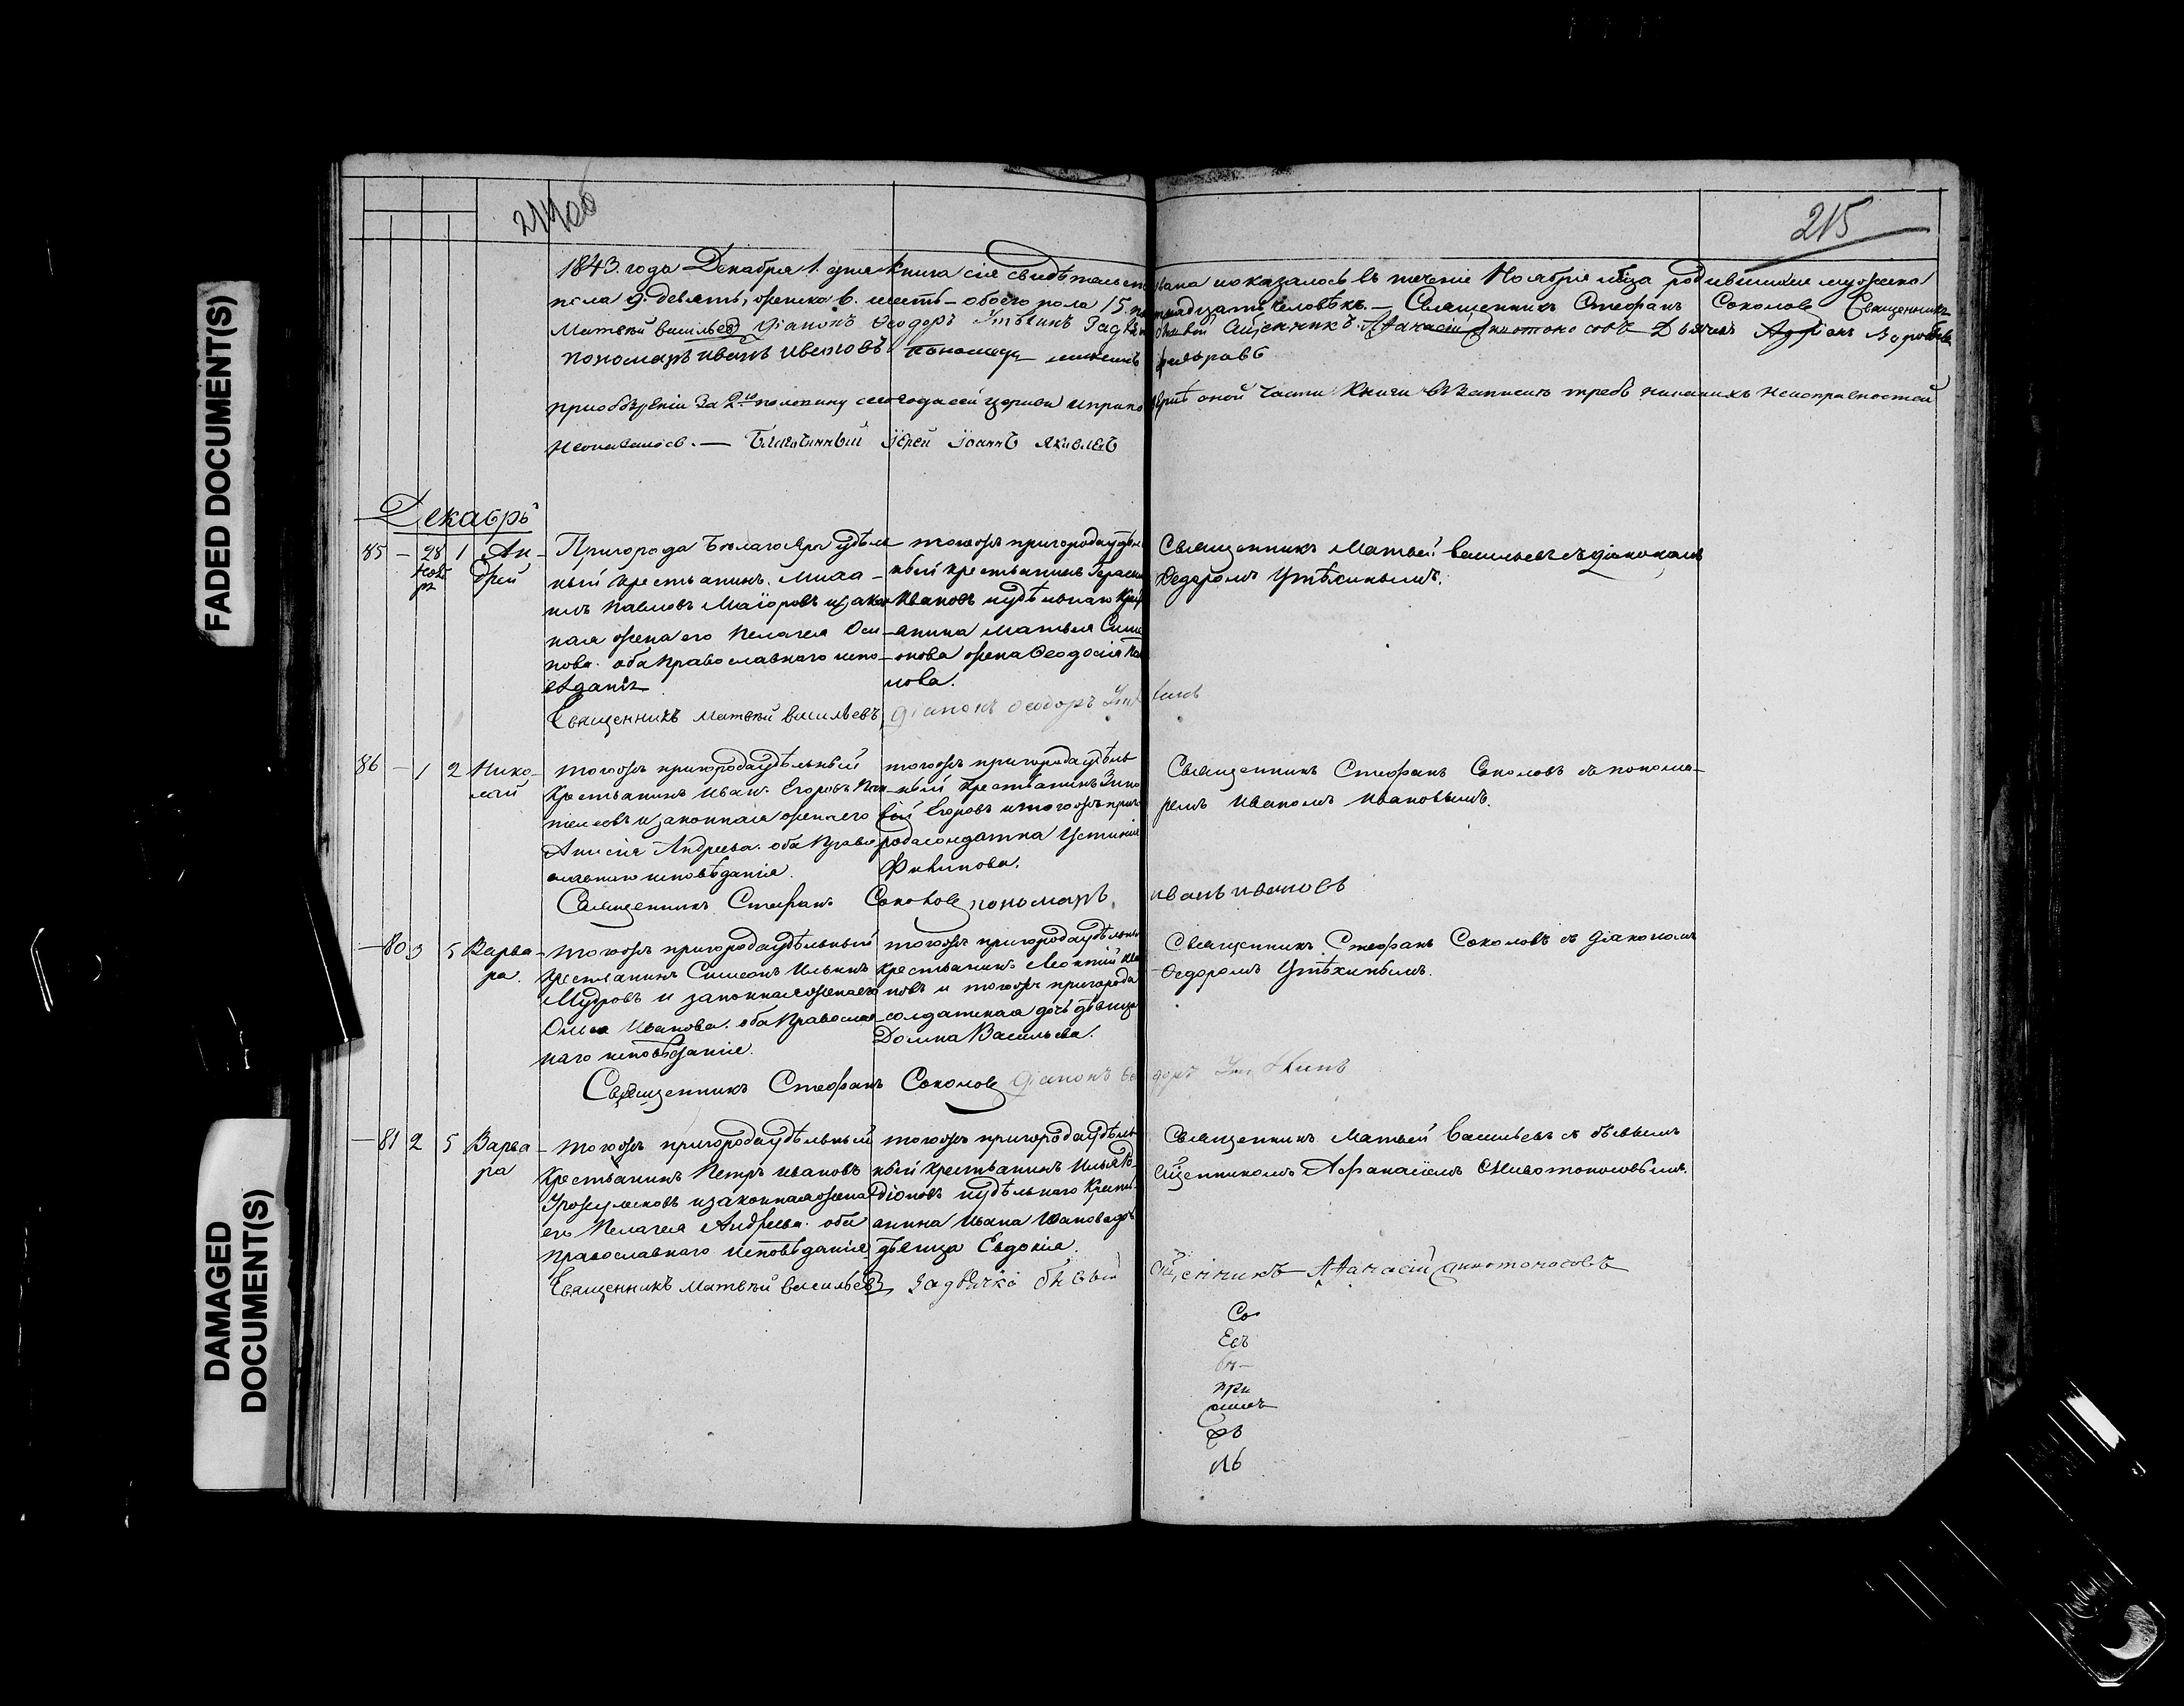 FADED DOCUMENT(S)
DAMAGED
DOCUMENT(S)
215
1843. года Декабря 1. дня книга сія свидѣтельствована и оказалось въ теченіе Ноября мѣца родившихся мужеска
пола 9. девять, женска 6. шесть – обоего пола 15. пятнадцать человѣкъ. – Священникъ Стефанъ Соколовъ Священникъ
Матвѣй Васильевъ Діаконъ Ѳеодоръ Утѣхинъ Бывый Сщенникъ Аѳанасій Животоносовъ Дьячекъ Адріанъ
Пономарь Иванъ Ивановъ Пономарь
При обозрѣніи за 2ю половину сего года сей церкви и при повѣркѣ оной части книги въ записи требъ никакихъ неисправностей
не оказалось. — Благочинный Іерей Іоаннъ Яковлевъ
Декабрь
85 – 28 Нояб. 1 Андрей
Пригорода Бѣлаго Яра удѣльный крестьянинъ Михаилъ Павловъ Маіоровъ и законная жена его Пелагея Осипова. оба православнаго исповѣданія
тогожъ пригорода удѣльный крестьянинъ Герасимъ Ивановъ и удѣльнаго крестьянина Матвея Симонова жена Ѳеодосія
Священникъ Матвей Васильевъ съ діакономъ
Ѳедоромъ Утѣхинымъ.
Священникъ Матвѣй Васильевъ, Діаконъ Ѳеодоръ Утѣхинъ
86 – 1 2 Николай
тогожъ пригорода удѣльный крестьянинъ Иванъ Егоровъ и законная жена его Анисія Андреева. оба православнаго исповѣданія.
тогожъ пригорода удѣльный крестьянинъ Зиновій Егоровъ и тогожъ пригорода солдатка Устинія Филипова.
Священникъ Стефанъ Соколовъ съ понома-
ремъ Иваномъ Ивановымъ.
Священникъ Стефанъ Соколовъ пономарь Иванъ Ивановъ
– 80 3 5 Варвара
тогожъ пригорода удѣльный крестьянинъ Симеонъ Ильинъ Мудровъ и законная жена его Ольга Иванова. оба православнаго исповѣданія.
тогожъ пригорода удѣльный крестьянинъ Леонтій Ивановъ и тогожъ пригорода солдатская дочь дѣвица Домна Васильева.
Священникъ Стефанъ Соколовъ съ діакономъ
Ѳедоромъ Утѣхинымъ.
Священникъ Стефанъ Соколовъ Діаконъ Ѳеодоръ Утѣхинъ
– 81 2 5 Варвара
тогожъ пригорода удѣльный крестьянинъ Петръ Ивановъ и законная жена его Пелагея Андреева. оба православнаго исповѣданія
тогожъ пригорода удѣльный крестьянинъ Илья Родіоновъ и удѣльнаго крестьянина Ивана Иванова дочь дѣвица Евдокія.
Священникъ Матвей Васильевъ съ бывымъ
Сщенникомъ Аѳанасіемъ Животоносовымъ.
Священникъ Матвѣй Васильевъ, За дьячка бывый Сщенникъ Аѳанасій Животоносовъ
Со
Евъ
при
ль